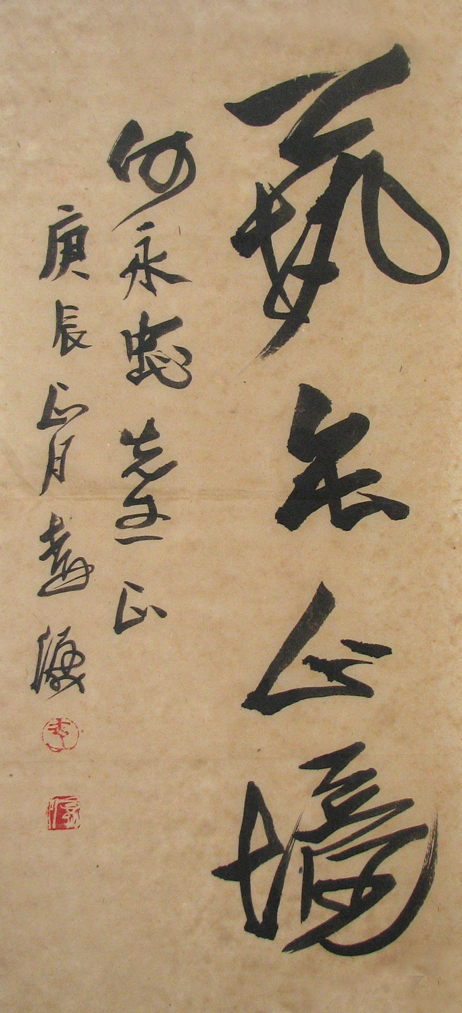 藝無止境
何永忠先生正
庚辰正月